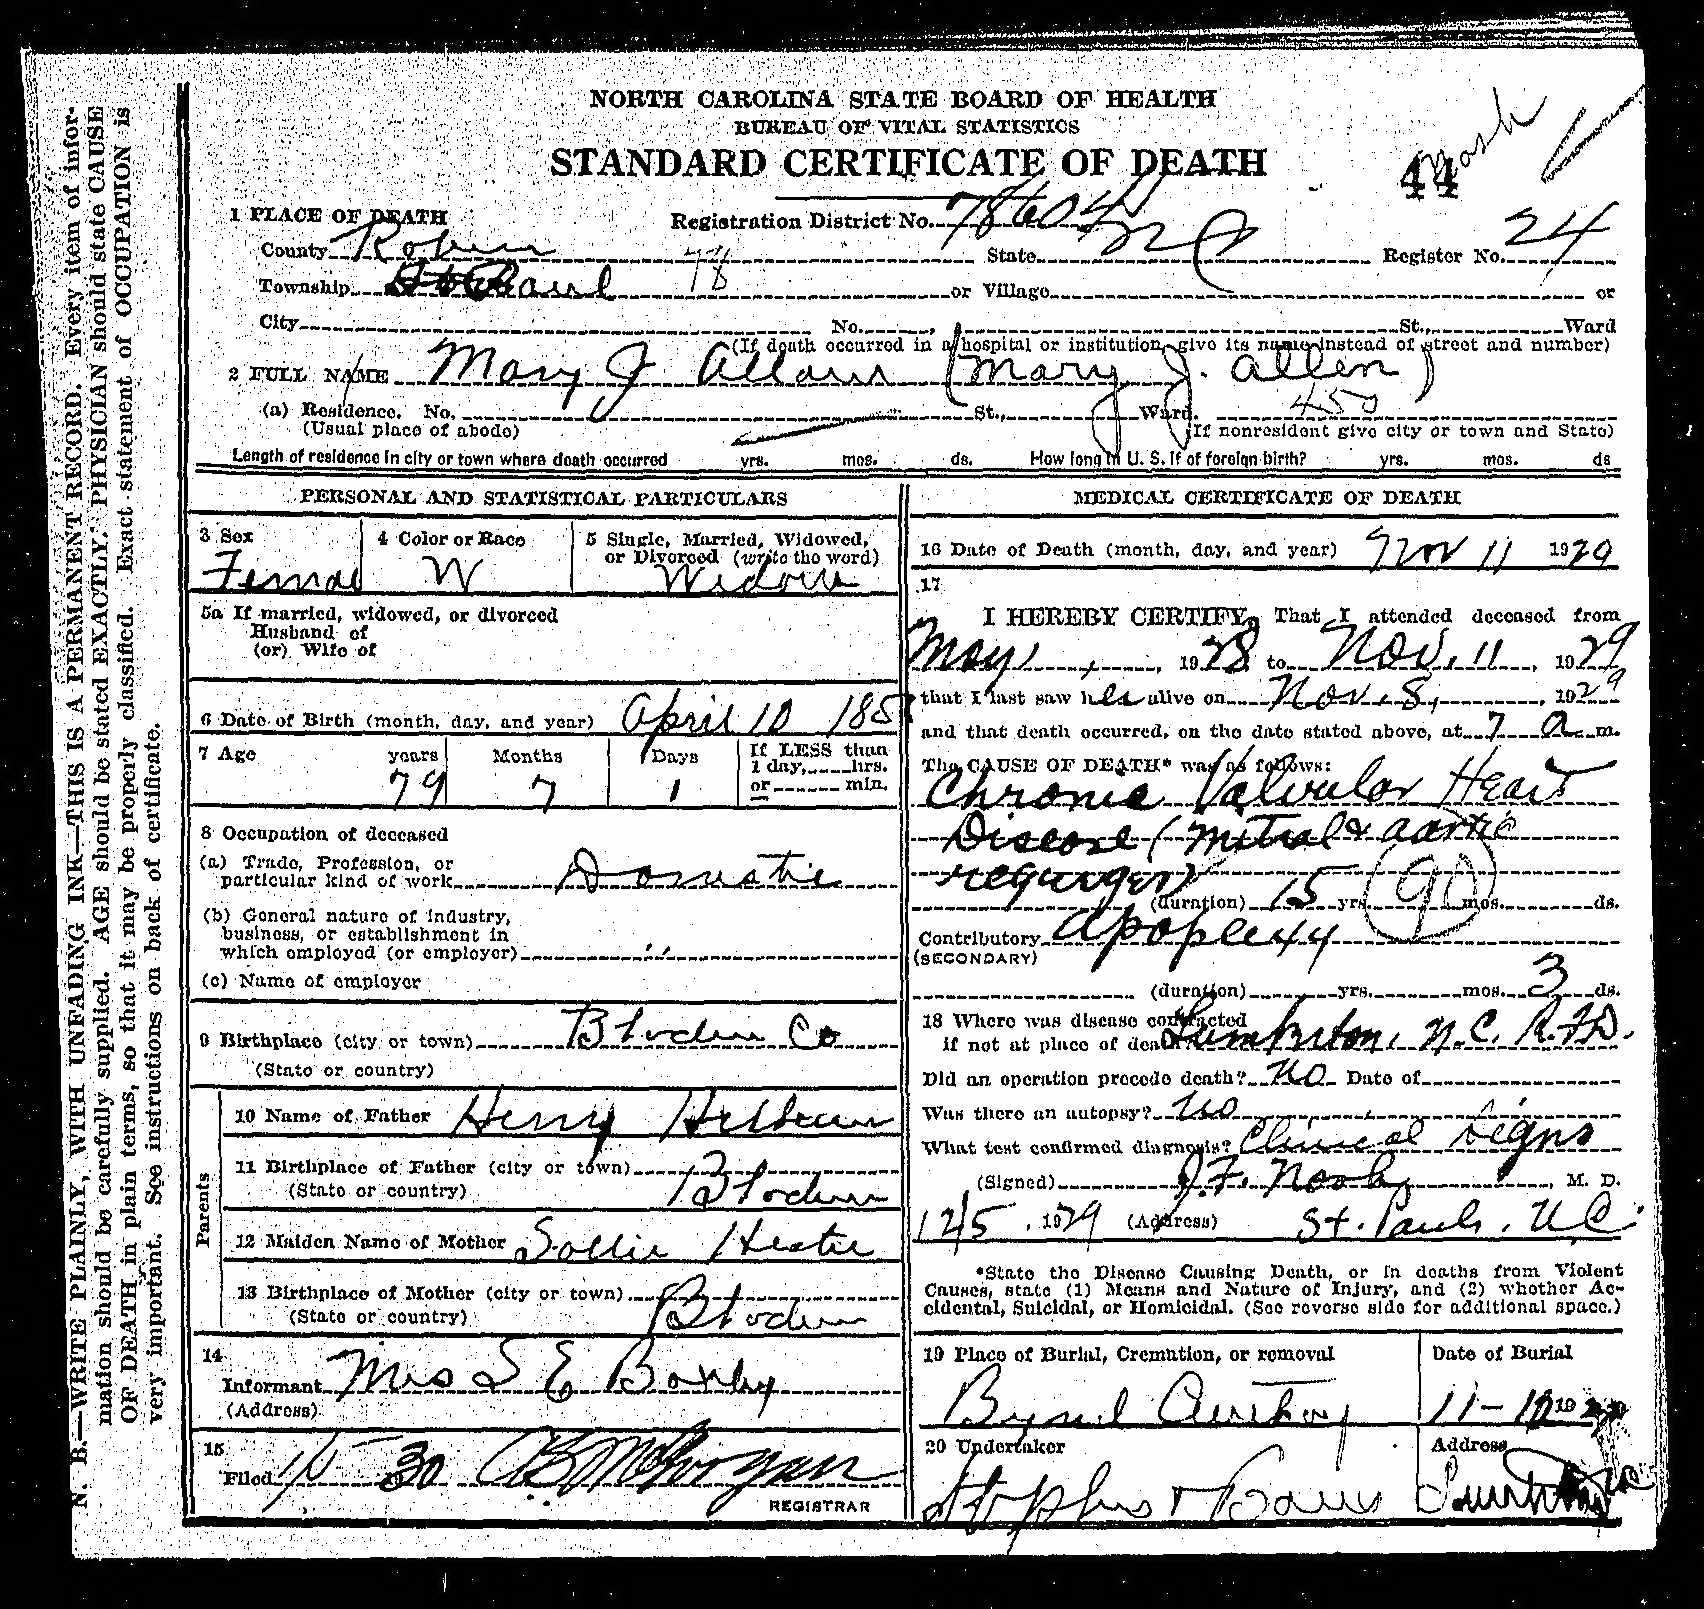 NORTH CAROLINA STATE BOARD OF HEALTH
BUREAU OF VITAL STATISTICS
STANDARD CERTIFICATE OF DEATH
44
1 PLACE OF DEATH
Registration District No. 78604
County
State N C
Register No. 24
Township St Paul 78 or Village or
City No. , St., Ward
(If death occurred in a hospital or institution, give its name instead of street and number)
2 FULL NAME Mary J (Mary J. Allen)
(a) Residence. No. St., Ward. 450
(Usual place of abode) (If nonresident give city or town and State)
Length of residence in city or town where death occurred yrs. mos. ds. How long in U. S. if of foreign birth? yrs. mos. ds
PERSONAL AND STATISTICAL PARTICULARS
3 Sex
4 Color or Race
5 Single, Married, Widowed,
or Divorced (write the word)
Female W Widow
5a If married, widowed, or divorced
Husband of
(or) Wife of
6 Date of Birth (month, day, and year) April 10 185
7 Age years Months Days If LESS than
1 day, hrs.
or min.
79 7 1
8 Occupation of deceased
(a) Trade, Profession, or
particular kind of work Domestic
(b) General nature of industry,
business, or establishment in
which employed (or employer) "
(c) Name of employer
9 Birthplace (city or town) Bladen Co
(State or country)
Parents
10 Name of Father Henry
11 Birthplace of Father (city or town) Bladen
(State or country)
12 Maiden Name of Mother Sallie Hester
13 Birthplace of Mother (city or town) Bladen
(State or country)
14
Informant Mrs S E
(Address)
15
Filed 1/5 1930
REGISTRAR
MEDICAL CERTIFICATE OF DEATH
16 Date of Death (month, day, and year) Nov 11 1929
17
I HEREBY CERTIFY, That I attended deceased from
May, , 1928 to Nov. 11, 1929
that I last saw her alive on Nov. 8, , 1929
and that death occurred, on the date stated above, at 7 a m.
The CAUSE OF DEATH* was as follows:
Chronic Valvular Heart
Disease (Mitral & aortic
(duration) 15 yrs. 90 mos. ds.
Contributory Apoplexy
(SECONDARY)
(duration) yrs. mos. 3 ds.
18 Where was disease contracted
if not at place of death? Lumberton, N.C. R.F.D.
Did an operation precede death? No Date of
Was there an autopsy? No
What test confirmed diagnosis? Clinical signs
(Signed) J. F. Nash, M. D.
12/5, 1929 (Address) St. Pauls, N.C.
*State the Disease Causing Death, or in deaths from Violent
Causes, state (1) Means and Nature of Injury, and (2) whether Ac-
cidental, Suicidal, or Homicidal. (See reverse side for additional space.)
19 Place of Burial, Cremation, or removal
Date of Burial
20 Undertaker
Address
N. B.—WRITE PLAINLY, WITH UNFADING INK—THIS IS A PERMANENT RECORD. Every item of infor-
mation should be carefully supplied. AGE should be stated EXACTLY. PHYSICIAN should state CAUSE
OF DEATH in plain terms, so that it may be properly classified. Exact statement of OCCUPATION is
very important. See instructions on back of certificate.